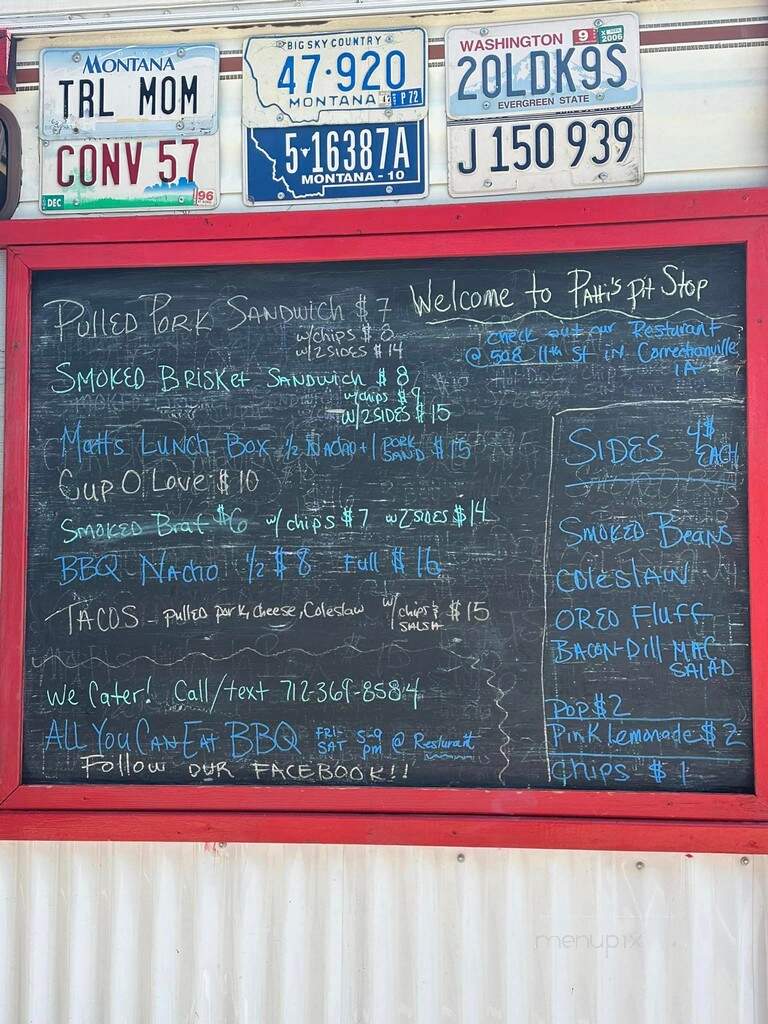 MONTANA
TRL MOM
CONV 57
DEC
96
BIG SKY COUNTRY
47·920
MONTANA
P 72
5 16387A
MONTANA-10
WASHINGTON
9
2006
20LDK9S
EVERGREEN STATE
J 150 939
Welcome to Patti's Pit Stop
check out our Resturant
@ 508 11th St in Correctionville,
IA
PULLED PORK SANDWICH $7
w/chips $8
w/2 SIDES $14
SMOKED BRISKET SANDWICH $8
w/chips $9
w/2 SIDES $15
Matt's LUNCH BOX 1/2 NACHO + 1 PORK SAND $15
CUP O' LOVE $10
SMOKED Brat $6 w/chips $7 w/2 SIDES $14
BBQ NACHO 1/2 $8 Full $16
TACOS - pulled pork, cheese, Coleslaw w/ chips & SALSA $15
We Cater! Call/text 712-369-8584
ALL YOU CAN EAT BBQ FRI- SAT 5-9 pm @ Resturant
FOLLOW OUR FACEBOOK!!
SIDES 4$ EACH
SMOKED BEANS
COLESLAW
OREO FLUFF
BACON-Dill MAC
SALAD
POP $2
PINK LEMONADE $2
CHIPS $1
menupix